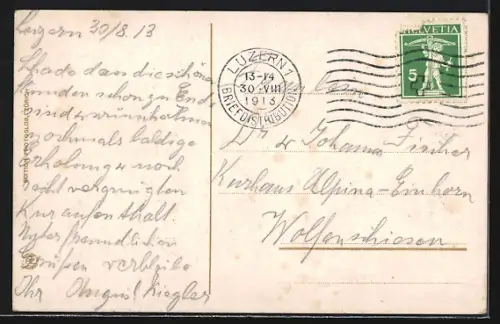 Luzern 30/8. 13
Schade dass die schönen
Stunden schon zu Ende
sind & wünsche Ihnen
nochmals baldige
Erholung & noch
recht vergnügten
Kuraufenthalt.
Unter freundlichen
Grüßen verbleibe
Ihr August Ziegler
LUZERN 1
13-14
30 VIII
1913
(BRIEFDISTRIBUTION)
HELVETIA
5
Johanna Fischer
Kurhaus Alpina-Einhorn
Wolfenschiesen